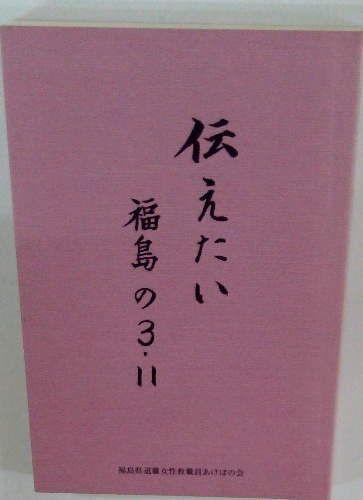 伝えたい
福島の3・11
福島県退職女性教職員あけぼの会